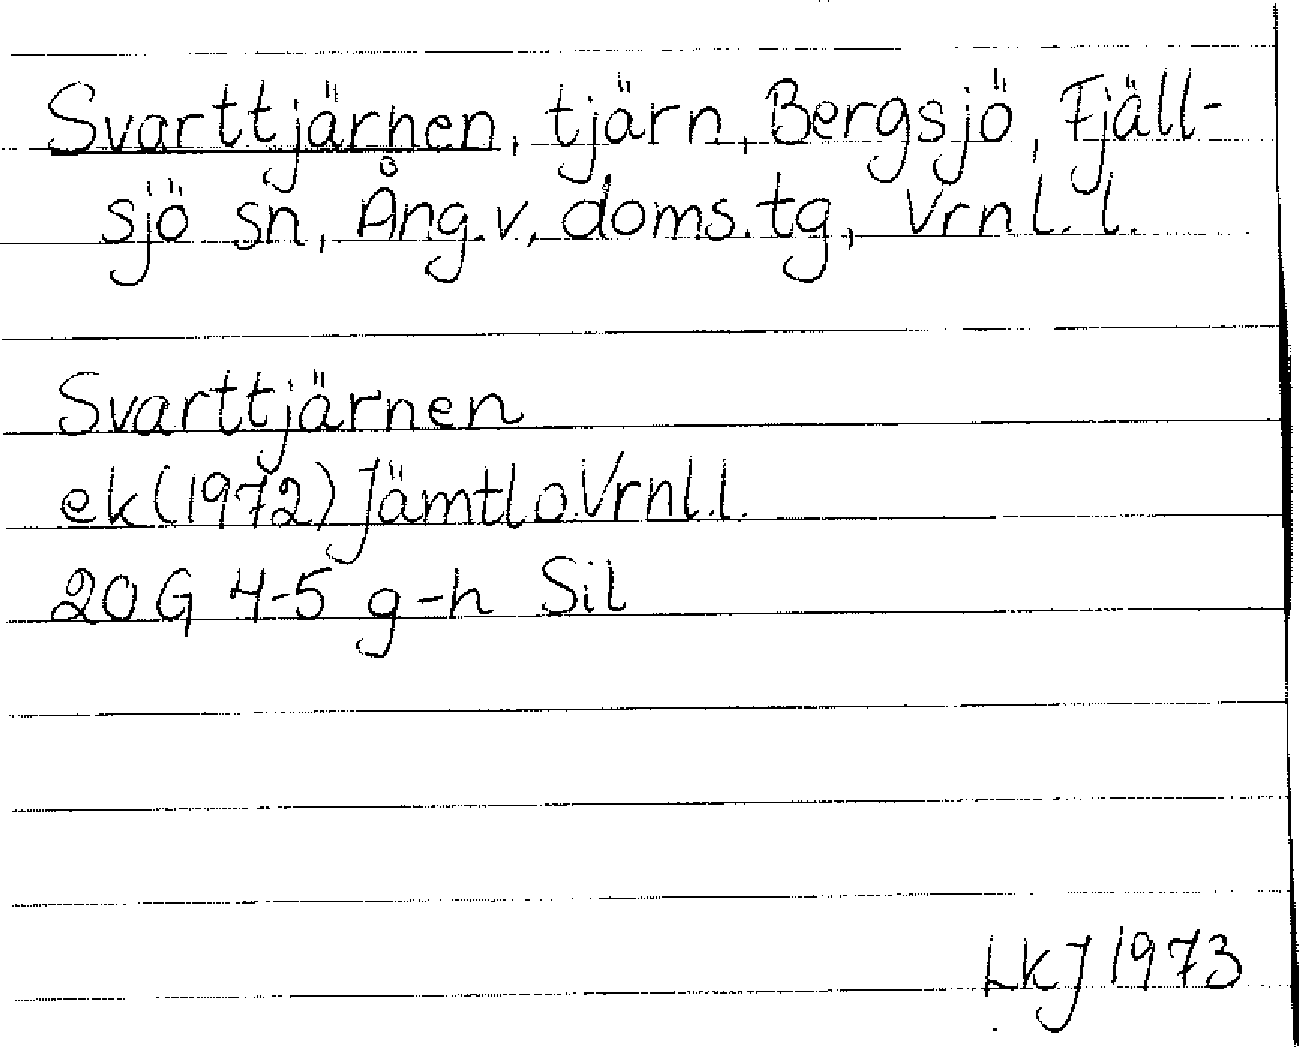 Svarttjärnen, tjärn, Bergsjö, Fjäll-
sjö sn, Ång.v. doms.tg, Vrnl.l.
Svarttjärnen
ek (1972) Jämtl o.Vrnl.l.
20G 4-5 g-h Sil
LKJ 1973